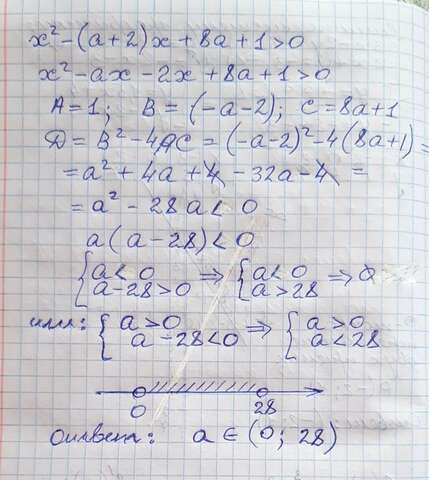 x² - (a+2)x + 8a + 1 > 0
x² - ax - 2x + 8a + 1 > 0
A = 1; B = (-a-2); C = 8a+1
D = B² - 4AC = (-a-2)² - 4(8a+1) =
= a² + 4a + 4 - 32a - 4 =
= a² - 28a < 0
a(a-28) < 0
{ a < 0 ⇒ { a < 0 ⇒ Ø
{ a-28 > 0 { a > 28
или: { a > 0 ⇒ { a > 0
{ a-28 < 0 { a < 28
0 28
Ответ: a ∈ (0; 28)